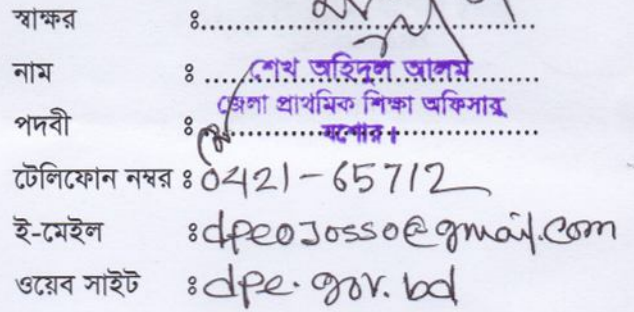 স্বাক্ষর ঃ....................
নাম ঃ.... শেখ অহিদুল আলম
পদবী ঃ জেলা প্রাথমিক শিক্ষা অফিসার
যশোর।
টেলিফোন নম্বর ঃ 0421-65712
ই-মেইল ঃ dpeojosso@gmail.com
ওয়েব সাইট ঃ dpe.gov.bd